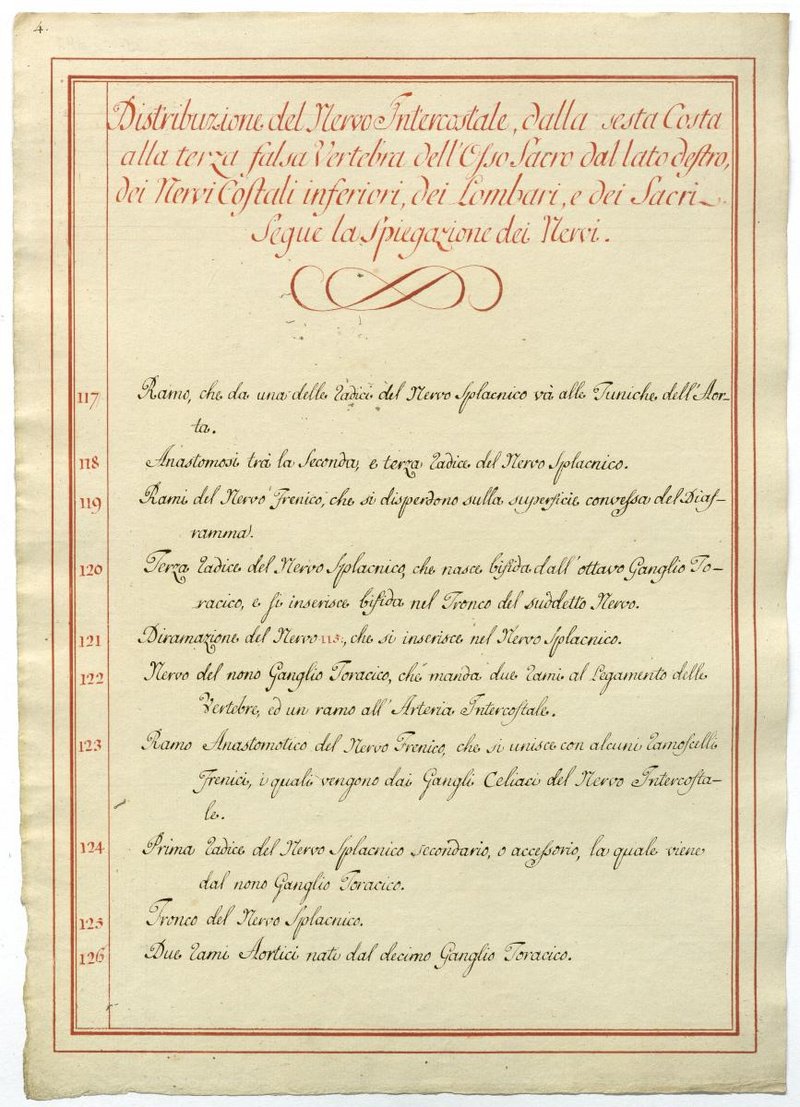 4.
Distribuzione del Nervo Intercostale, dalla sesta Costa
alla terza falsa Vertebra dell'Osso Sacro dal lato destro,
dei Nervi Costali inferiori, dei Lombari, e dei Sacri.
Segue la Spiegazione dei Nervi.
117 Ramo, che da una delle Radici del Nervo Splacnico và alle Tuniche dell'Aor-
ta.
118 Anastomosi trà la Seconda, e terza Radice del Nervo Splacnico.
119 Rami del Nervo Frenico, che si disperdono sulla superficie convessa del Diaf-
ramma.
120 Terza Radice del Nervo Splacnico, che nasce bifida dall'ottavo Ganglio To-
racico, e si inserisce bifida nel Tronco del suddetto Nervo.
121 Diramazione del Nervo 115., che si inserisce nel Nervo Splacnico.
122 Nervo del nono Ganglio Toracico, che manda due Rami al Legamento delle
Vertebre, ed un ramo all'Arteria Intercostale.
123 Ramo Anastomotico del Nervo Frenico, che si unisce con alcuni Ramoscelli
Frenici, i quali vengono dai Gangli Celiaci del Nervo Intercosta-
le.
124 Prima Radice del Nervo Splacnico secondario, o accessorio, la quale viene
dal nono Ganglio Toracico.
125 Tronco del Nervo Splacnico.
126 Due Rami Aortici nati dal decimo Ganglio Toracico.